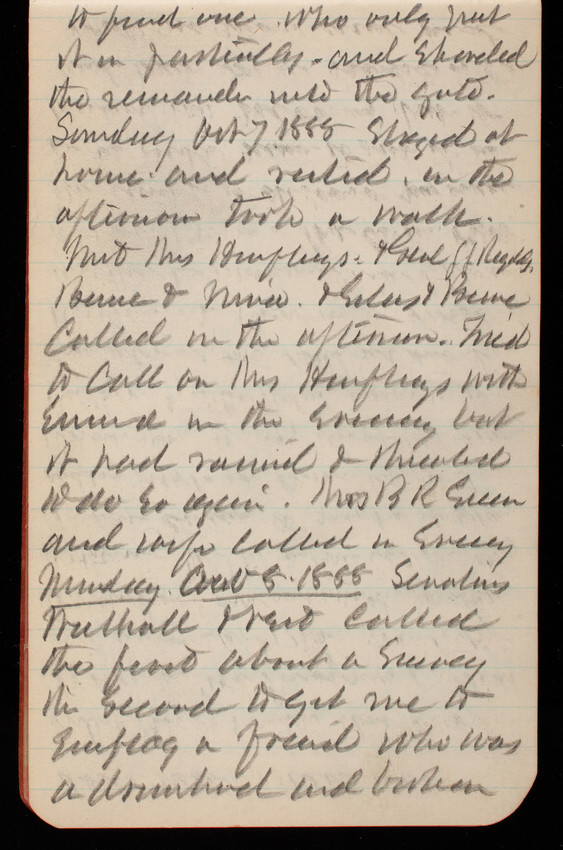 to find one who only put
it in partially. and shoveled
the remainder into the gate.
Sunday Oct 7 1888 Stayed at
home and rested. in the
afternoon took a walk.
Met Mrs Humphreys. & Genl J J Reynolds,
& Nina. &
Called in the afternoon. Tried
to Call on Mrs Humphreys with
Emma in the Evening but
it had rained & threatened
to do so again. Thos B R Green
and wife called in Evening
Monday Oct 8. 1888 Senators
Walthall & Vest Called
the first about a Survey
the second to get me to
Employ a friend who was
a drunkard and broken